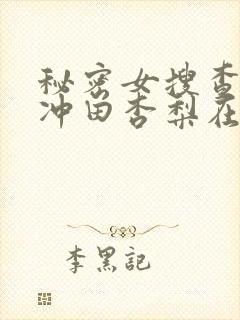 秘密女搜查
冲田杏梨在
李黑記